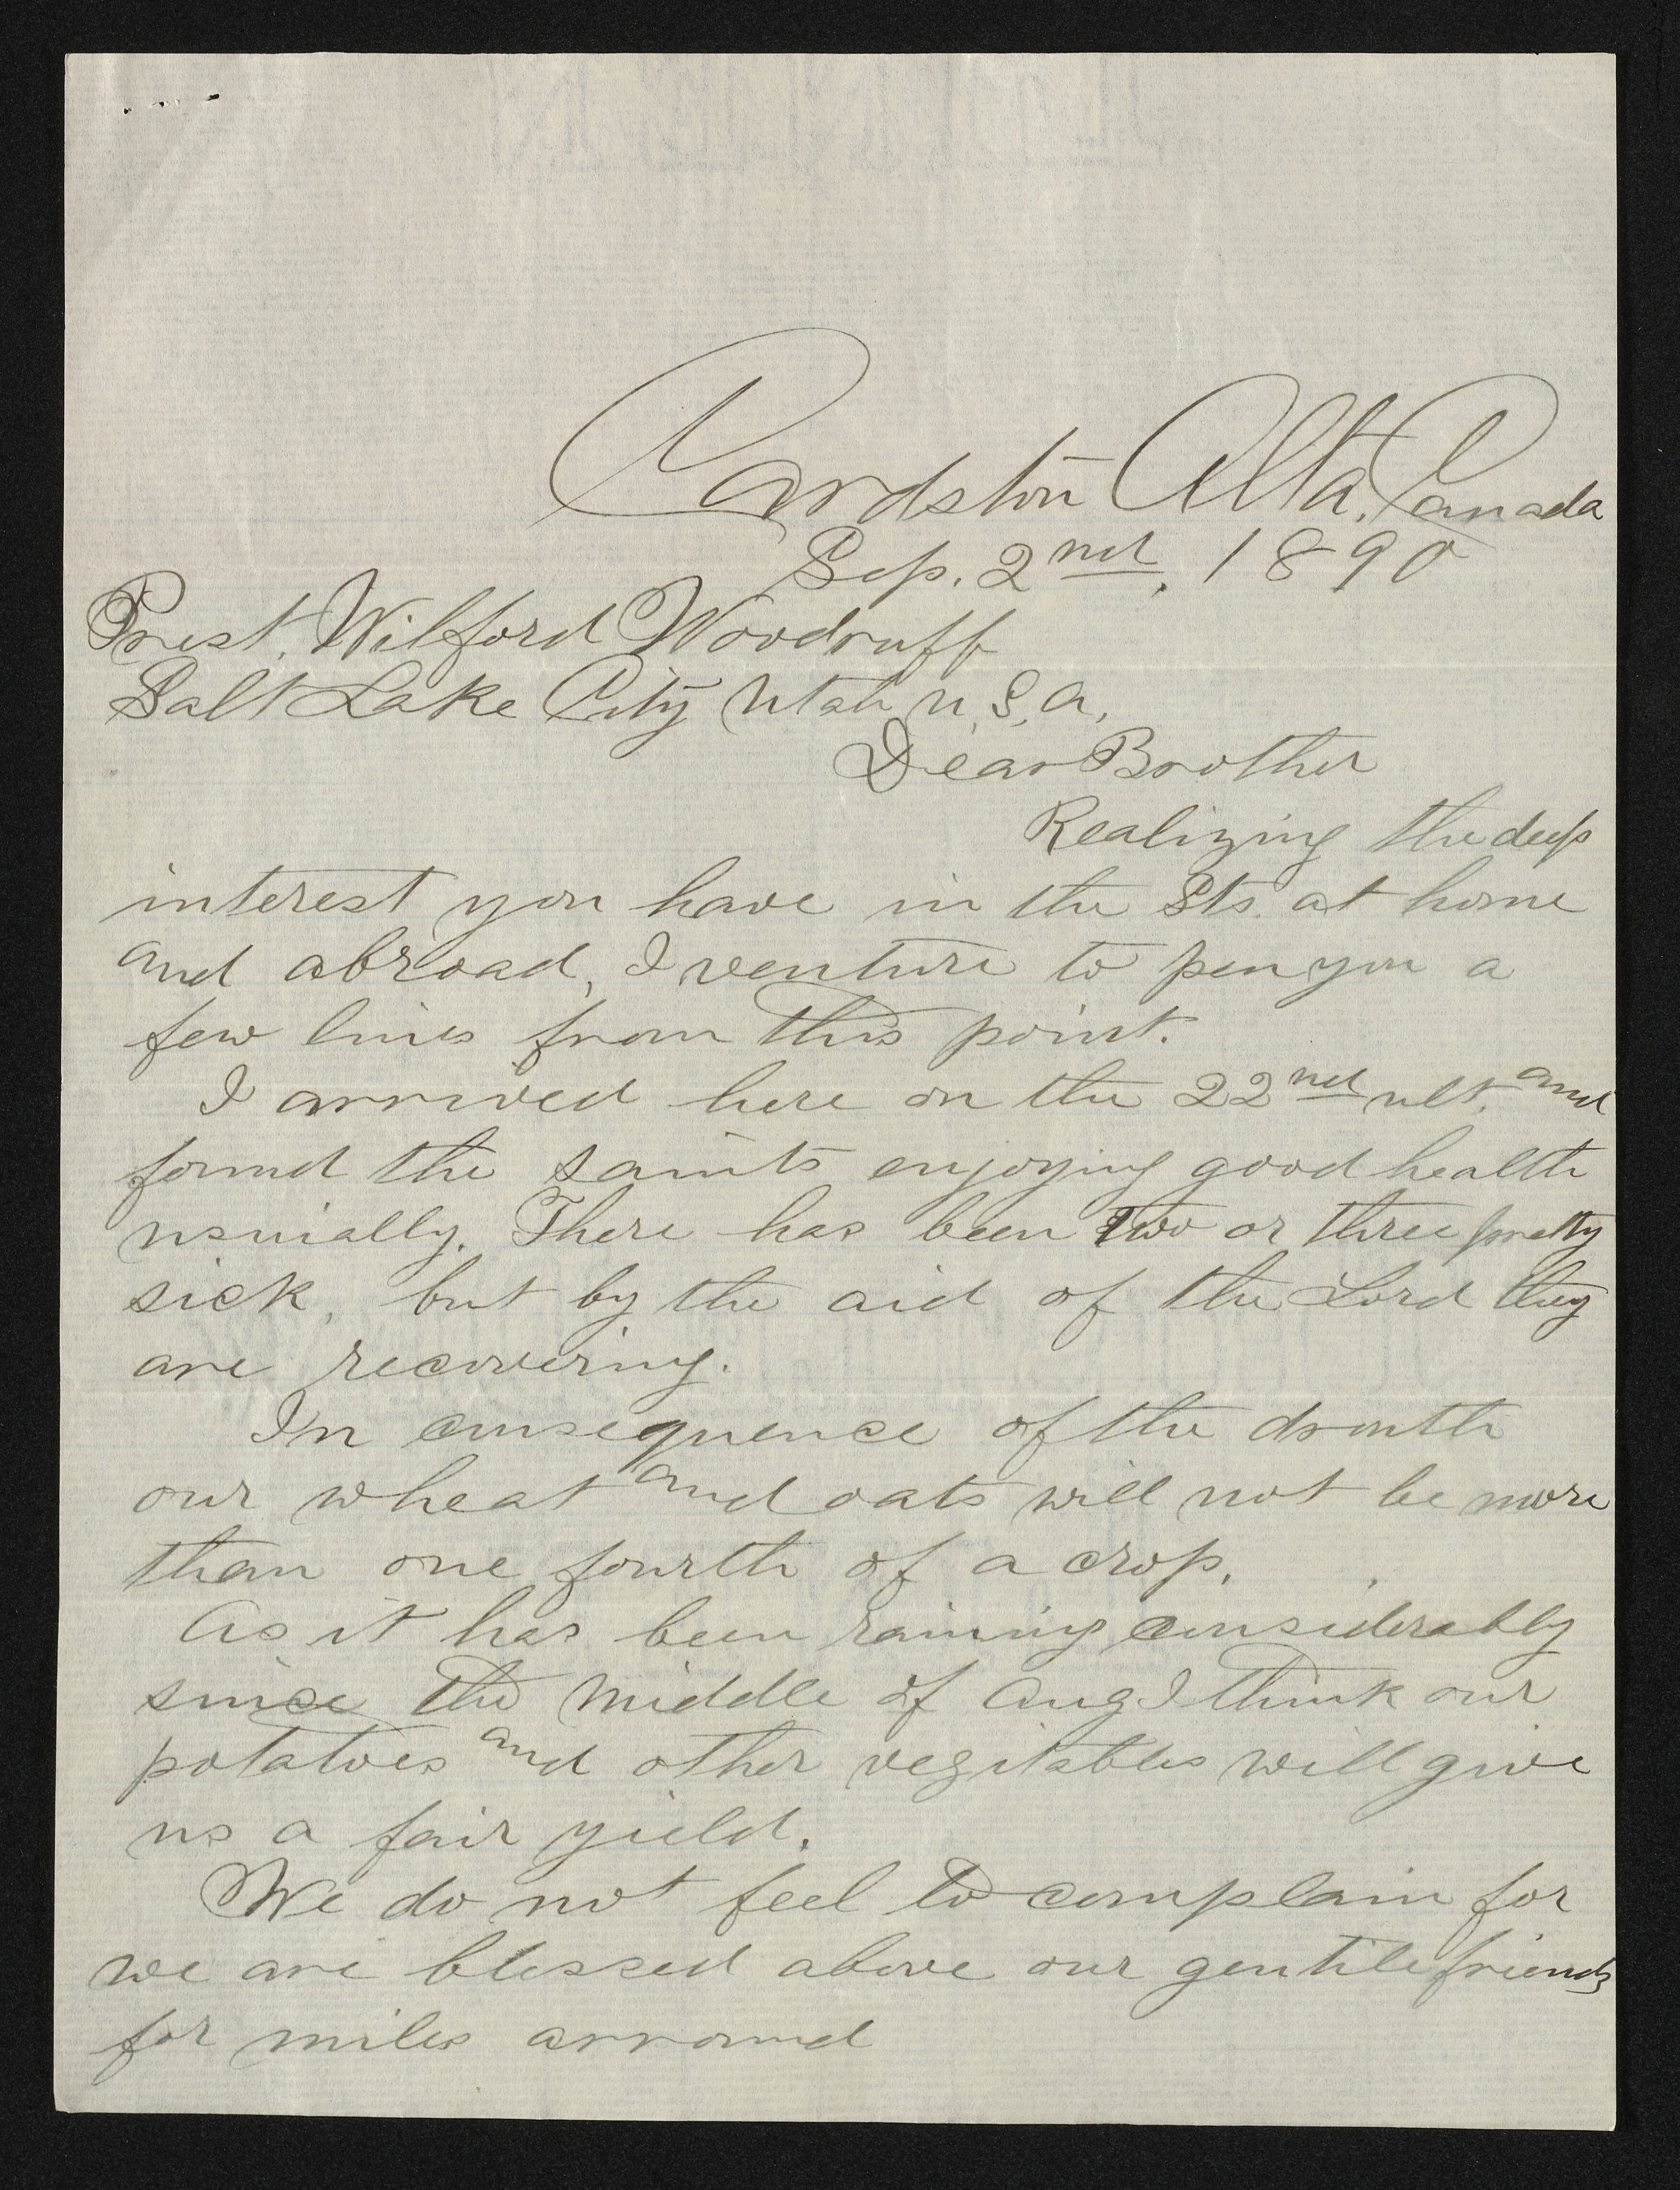 Cardston Alta, Canada
Sep. 2nd, 1890
Prest. Wilford Woodruff
Salt Lake City Utah U,S,A,
Dear Brother
Realizing the deep
interest you have in the Sts. at home
and abroad, I venture to pen you a
few lines from this point.
I arrived here on the 22nd ult. and
found the saints enjoying good health
usuially. There has been two or three pretty
sick, but by the aid of the Lord they
are recovering.
In consequence of the drouth
our wheat and oats will not be more
than one fourth of a crop.
As it has been raining considerably
since the middle of Aug I think our
potatoes and other vegitables will give
us a fair yield.
We do not feel to complain for
we are blessed above our gentile friends
for miles arround